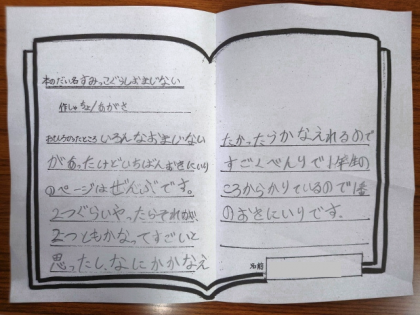 本のだい名すみっこぐらしおまじない
作しゃ名/ながさ
おもしろかったところ いろんなおまじない
があったけどいちばんおきにいり
のページはぜんぶです。
2つぐらいやったらそれが
2つともかなってすごいと
思ったし、なにかかなえ
たかったらかなえれるので
すごくべんりで1年生の
ころからかりているので1番
のおきにいりです.
名前